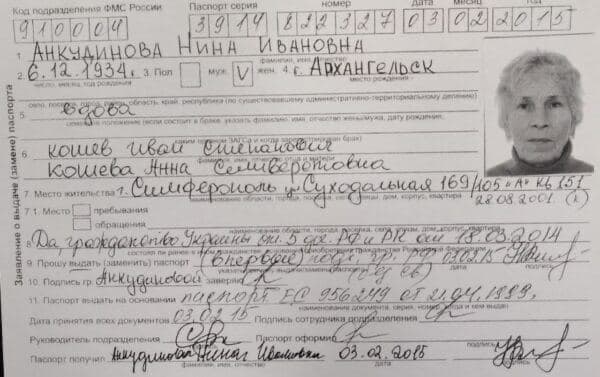 Код подразделения ФМС России Паспорт серия номер дата месяц год
910004 3914 822327 03 02 2015
1. Анкудинова Нина Ивановна
фамилия, имя, отчество
2. 6.12.1934г. 3. Пол муж. V жен. 4. г. Архангельск
число, месяц, год рождения место рождения
село, поселок, город, район, область, край, республика (по существовавшему административно-территориальному делению)
5. вдова
семейное положение (если состоит в браке, указать фамилию, имя, отчество жены/мужа, дату рождения,
каким органом ЗАГСа и когда зарегистрирован брак)
6. Кошев Иван Степанович
фамилия, имя, отчество отца и матери
Кошева Анна Селиверстовна
7 Место жительства г. Симферополь ул. Суходольная 169/105 "А" кв 151
наименование области, города, поселка, села, улицы, дом, корпус, квартира
7 1. Место пребывания 22.08.2001
обращения
наименование области, города, поселка, села, улицы, дом, корпус, квартира
8 Да гражданство Украины 18.03.2014
9. Прошу выдать (заменить) паспорт впервые 03.02.15
10. Подпись гр. Анкудиновой заверяю
11. Паспорт выдать на основании паспорт ЕС 956249 от 21.04.1999,
наименование документа, серия, номер, когда и кем выдан
Дата принятия всех документов 03.02.15 Подпись сотрудника подразделения
Руководитель подразделения Паспорт оформил
подпись подпись
Паспорт получил Анкудинова Нина Ивановна 03.02.2015
фамилия, имя, отчество дата подпись
Заявление о выдаче (замене) паспорта